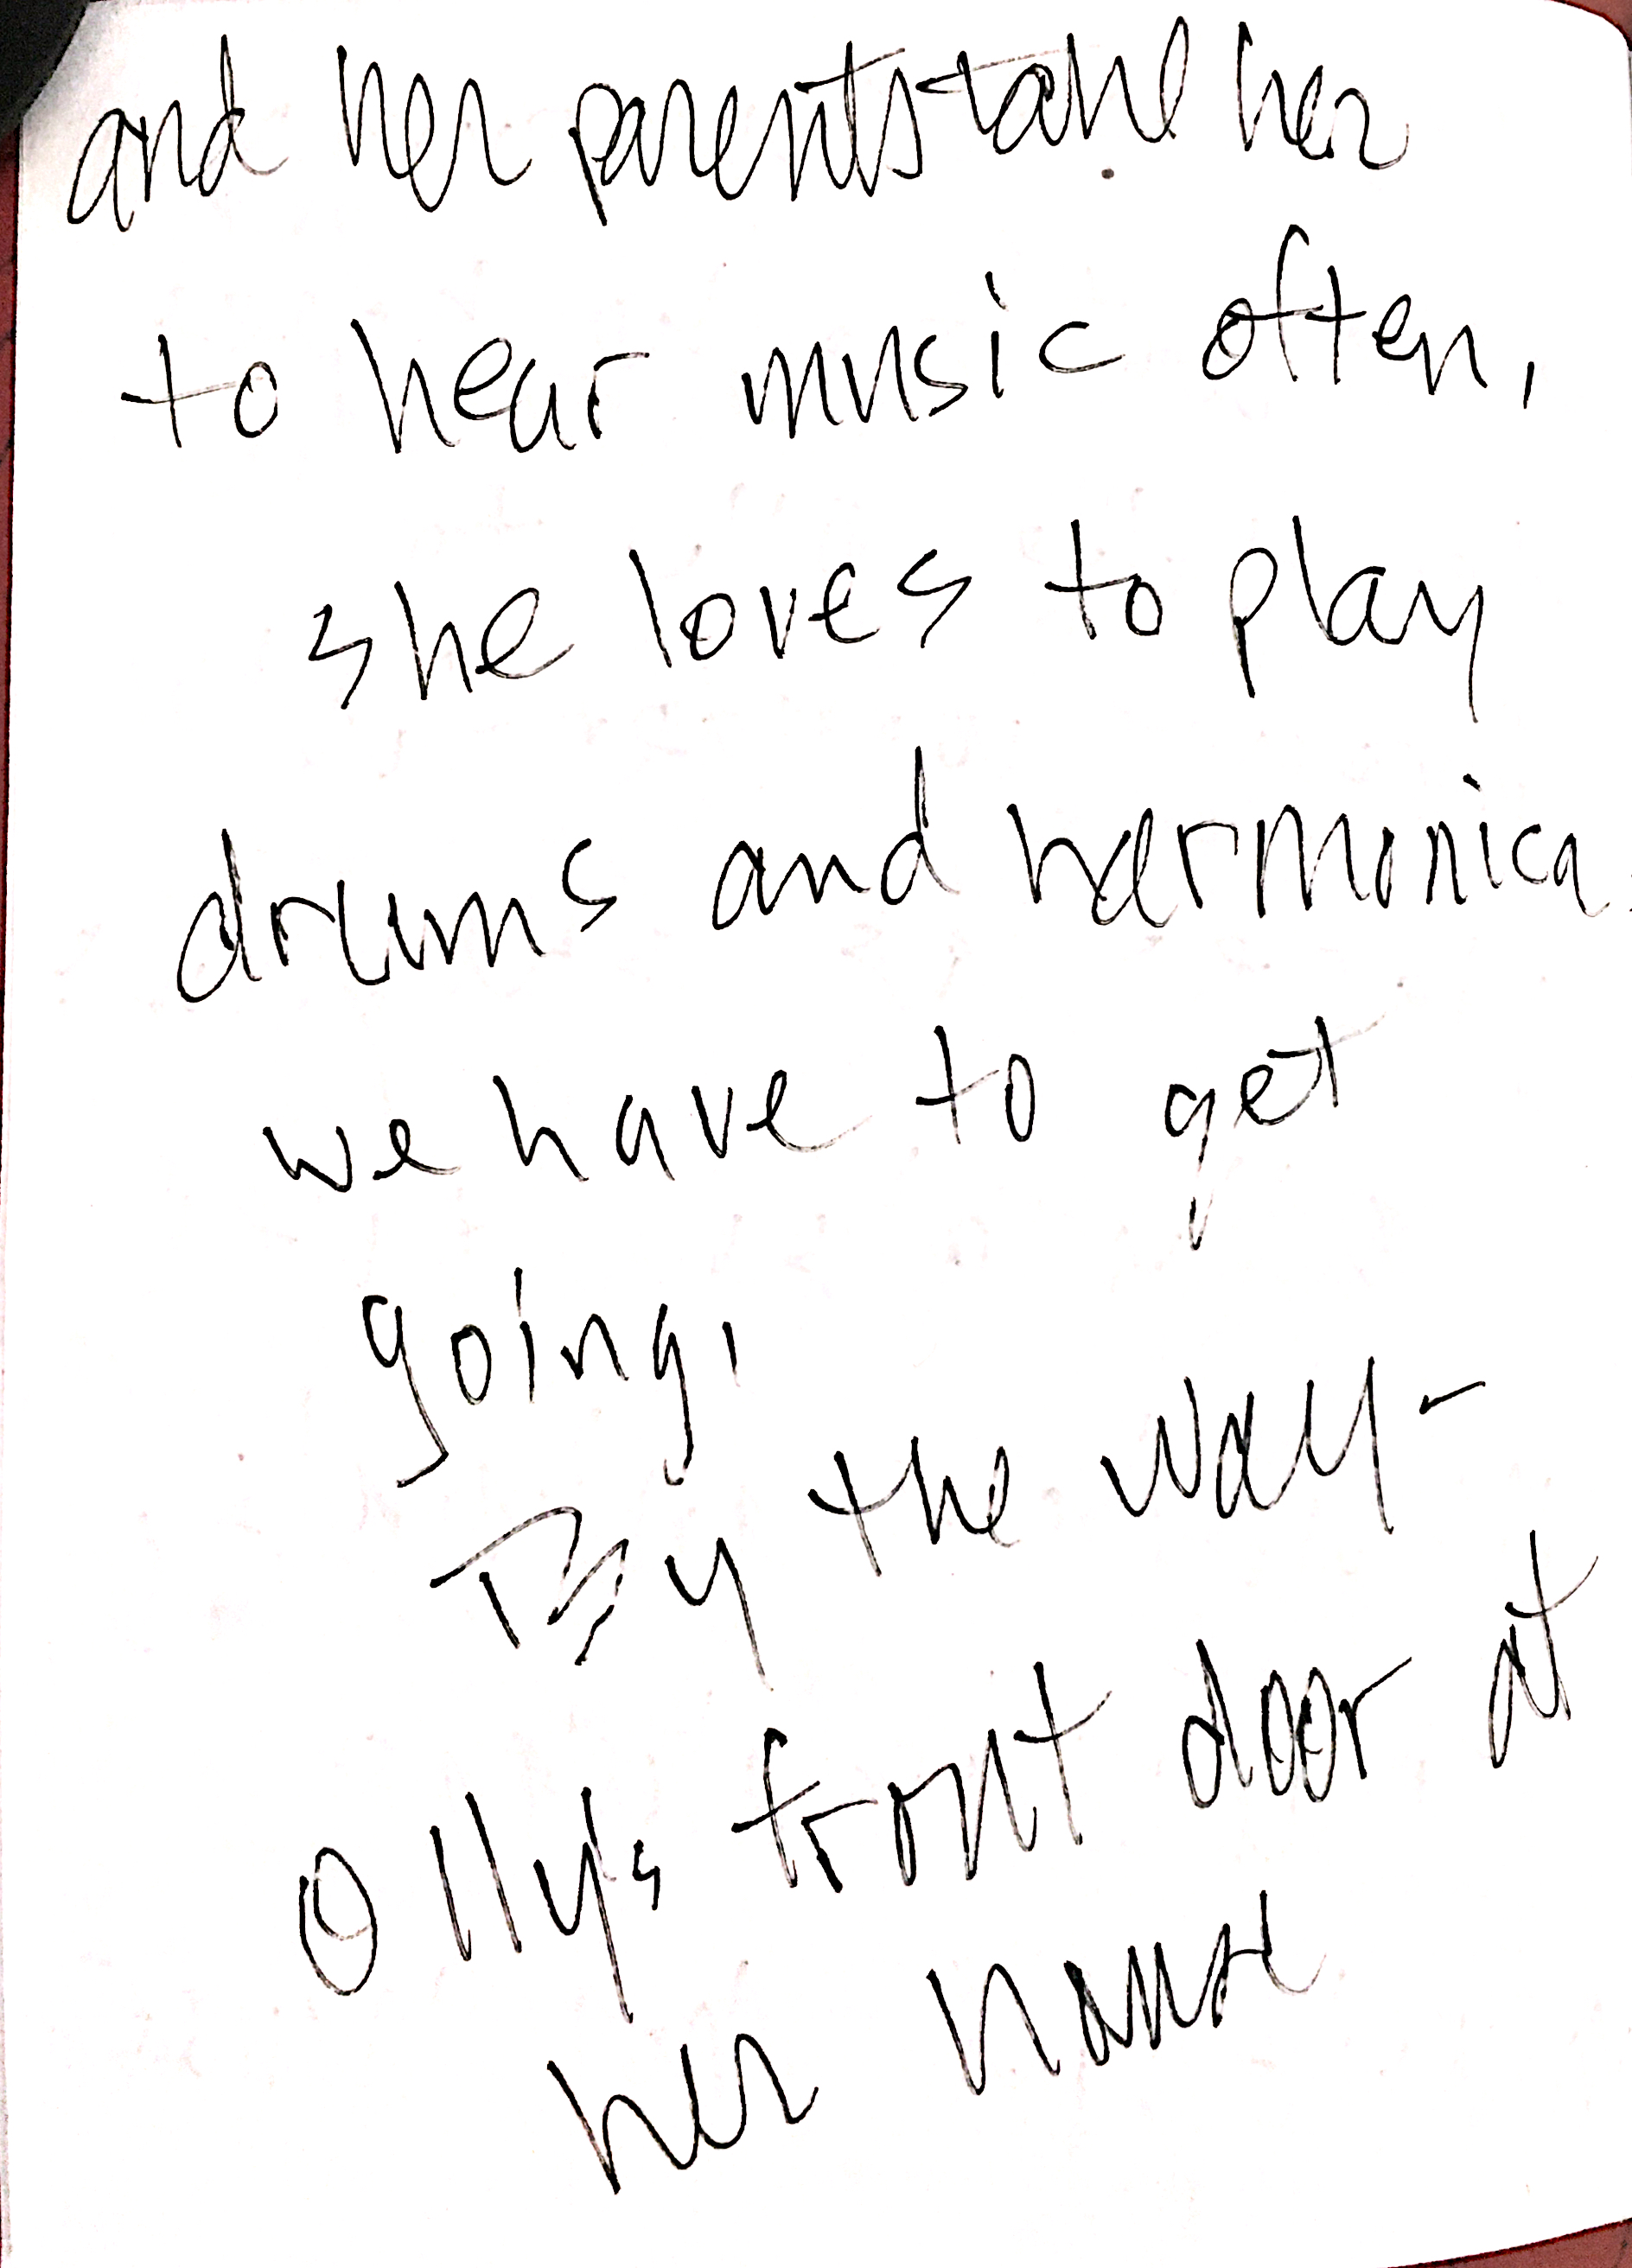 and her parents take her
to hear music often,
she loves to play
drums and harmonica.
we have to get
going,
By the way -
Olly's front door at
her house